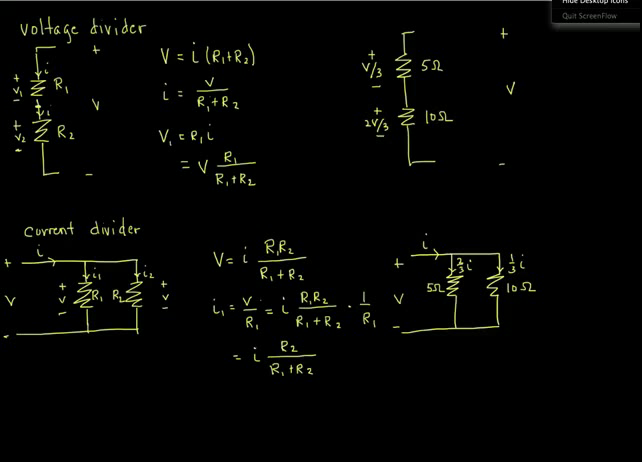 Hide Desktop Icons
Quit ScreenFlow
voltage divider
+ i R₁ v₁ −
+ i R₂ v₂ −
+ V −
V = i (R₁+R₂)
i = V / (R₁+R₂)
V₁ = R₁ i
= V R₁ / (R₁+R₂)
+ V/3 − 5Ω
+ 2V/3 − 10Ω
+ V −
current divider
i
+ V −
i₁ + V − R₁
i₂ R₂ + V −
V = i R₁R₂ / (R₁+R₂)
i₁ = V/R₁ = i R₁R₂ / (R₁+R₂) · 1/R₁
= i R₂ / (R₁+R₂)
i
+ V −
2/3 i 5Ω
1/3 i 10Ω